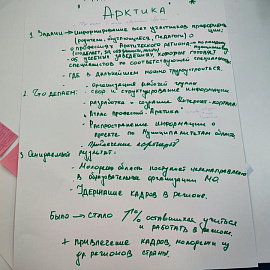 "Арктика"
1. Задачи → информирование всех участников профориентации
(родители, обучающиеся, педагоги)
- о профессиях Арктического региона
- об учебных заведениях, которые готовят
специалистов по соответствующей специальности
- где в дальнейшем можно трудоустроиться.
2. Что делаем: - организация рабочей группы
- сбор и структурирование информации
- разработка и создание Интернет-портала
"Атлас профессий Арктики"
- Распространение информации о
проекте по муниципалитетам области
3. Ожидаемый результат:
- Молодежь области поступает
в образовательные организации МО.
- Удержание кадров в регионе.
Было → стало ↑% оставшихся учиться
и работать в регионе.
+ привлечение кадров, молодежи из
др. регионов страны.